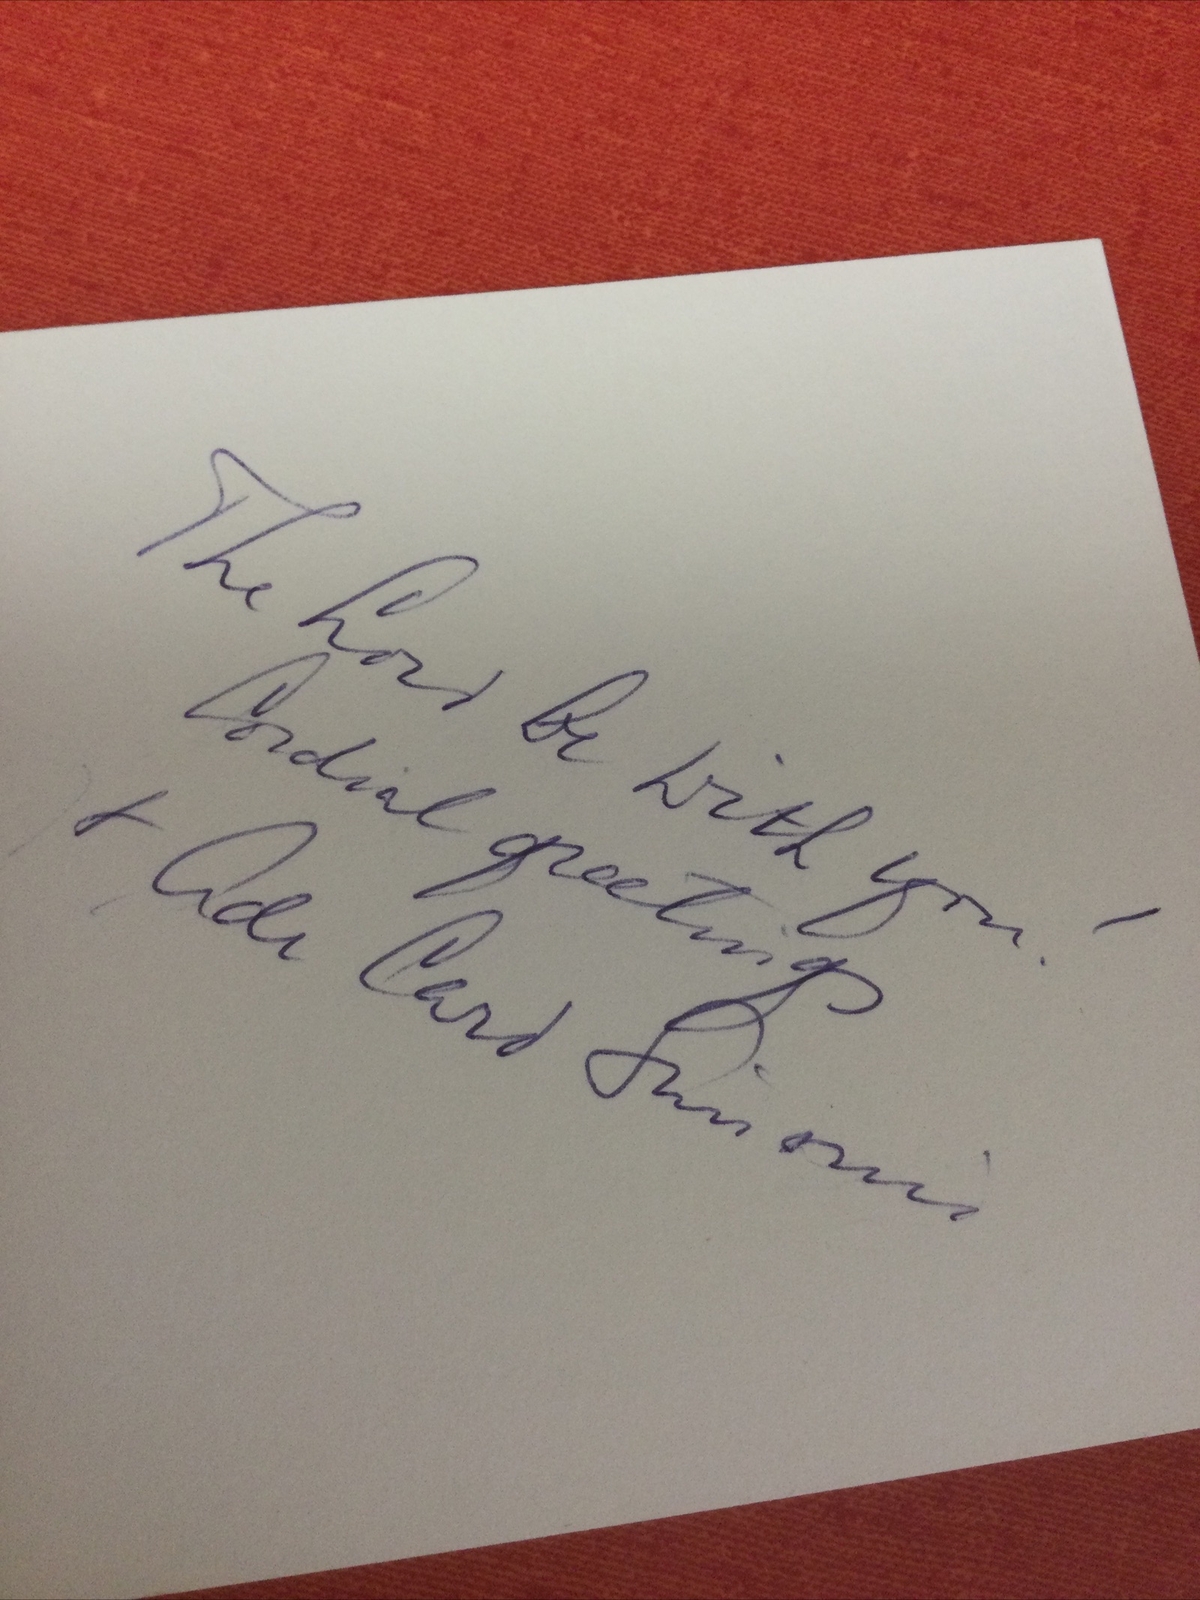 The Lord be with you!
Cordial greetings
+ Ad. Card Simonis